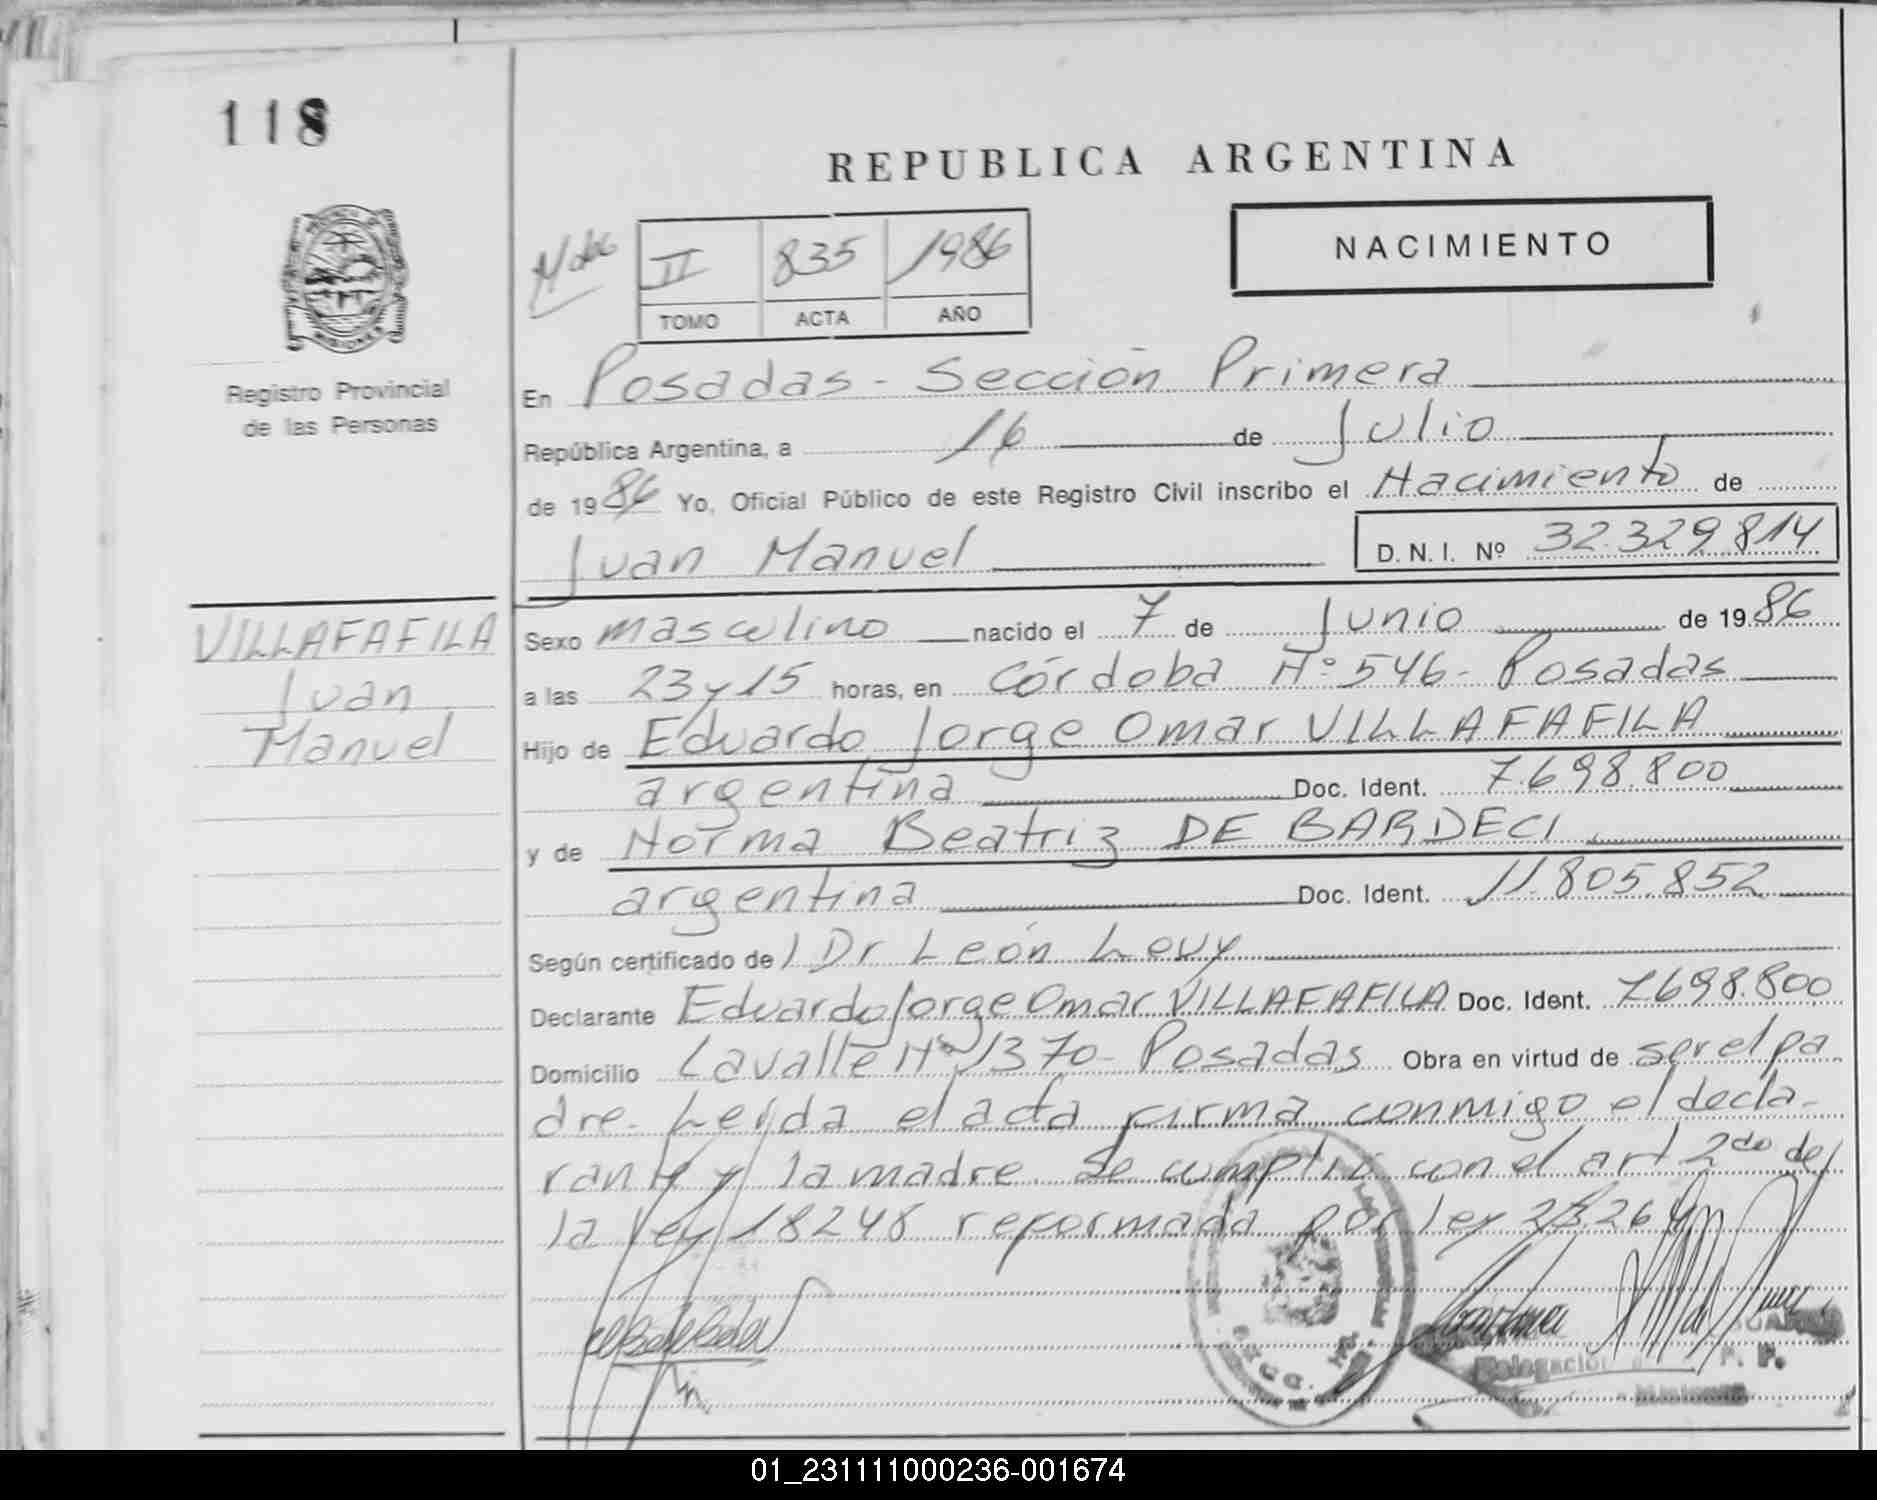 118
REPUBLICA ARGENTINA
NACIMIENTO
II 835 1986
TOMO ACTA AÑO
Registro Provincial
de las Personas
En Posadas - Sección Primera
República Argentina, a 16 de Julio
de 1986 Yo, Oficial Público de este Registro Civil inscribo el Nacimiento de
Juan Manuel D.N.I. Nº 32.329.814
VILLAFAFILA
Juan
Manuel
Sexo masculino nacido el 7 de Junio de 1986
a las 23 y 15 horas, en Córdoba Nº 546 - Posadas
Hijo de Eduardo Jorge Omar VILLAFAFILA
argentina Doc. Ident. 7.698.800
y de Norma Beatriz DE BARDECI
argentina Doc. Ident. 11.805.852
Según certificado de Dr León Levy
Declarante Eduardo Jorge Omar VILLAFAFILA Doc. Ident. 7.698.800
Domicilio Lavalle Nº 1370 - Posadas Obra en virtud de ser el pa
dre. Leída el acta firma conmigo el decla-
rante y la madre. Se cumplió con el art 2do de
la ley 18248 reformada por ley 23.264
Delegación
01_231111000236-001674